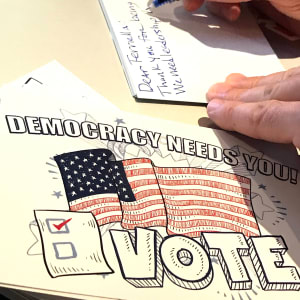 Dear Ferrell,
Thank you for being
We need leadership
DEMOCRACY NEEDS YOU!
VOTE